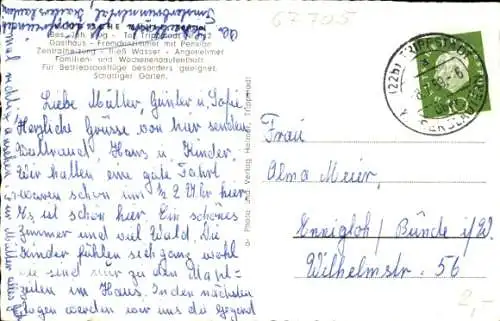 67705
Bes. Joh. Zug - Tel. Trippstadt
Gasthaus - Fremdenzimmer mit Pension
Zentralheizung - fließ. Wasser - Angenehmer
Familien- und Wochenendaufenthalt
Für Betriebsausflüge besonders geeignet.
Schattiger Garten.
Liebe Mutter, Günter u.
Herzliche Grüsse von hier senden
Waltraud, Hans u. Kinder.
Wir hatten eine gute Fahrt
waren schon um ½ 2 Uhr hier.
Es ist schön hier. Ein schönes
Zimmer und viel Wald. Die
Kinder fühlen sich ganz wohl
sie sind nur zu den Mahl-
zeiten im Haus. In den nächsten
Tagen werden wir uns die Gegend
Photo und Verlag
Trippstadt
(22b) TRIPPSTADT
KAISERSLAUTERN
10
Frau
Alma Meier,
Ennigloh / Bünde i/W.
Wilhelmstr. 56
2,-